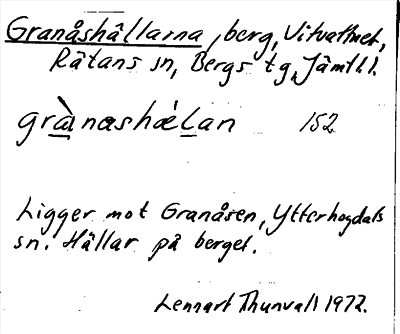 Granåshällarna, berg, Vitvattnet,
Rätans sn, Bergs tg, Jämtl.
gràn̲ashǽl̲an 152
Ligger mot Granåsen, Ytterhogdals
sn. Hällar på berget.
Lennart Thunvall 1972.